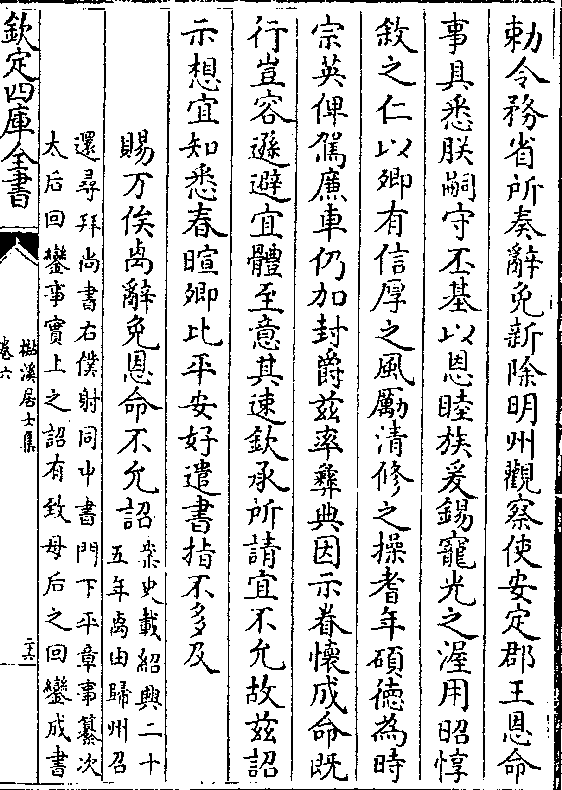 勅令務省所奏辭免新除明州觀察使安定郡王恩命
事具悉朕嗣守丕基以恩睦族爰錫寵光之渥用昭惇
敘之仁以卿有信厚之風勵清修之操耆年碩德為時
宗英俾駕廉車仍加封爵兹率彝典因示眷懷成命既
行豈容遜避宜體至意其速欽承所請宜不允故兹詔
示想宜知悉春暄卿比平安好遣書指不多及
賜万俟卨辭免恩命不允詔
案史載紹興二十
五年卨由歸州召
還尋拜尚書右僕射同中書門下平章事纂次
太后回鑾事實上之詔有致母后之回鑾成書
欽定四庫全書
楳溪居士集
卷六
二六